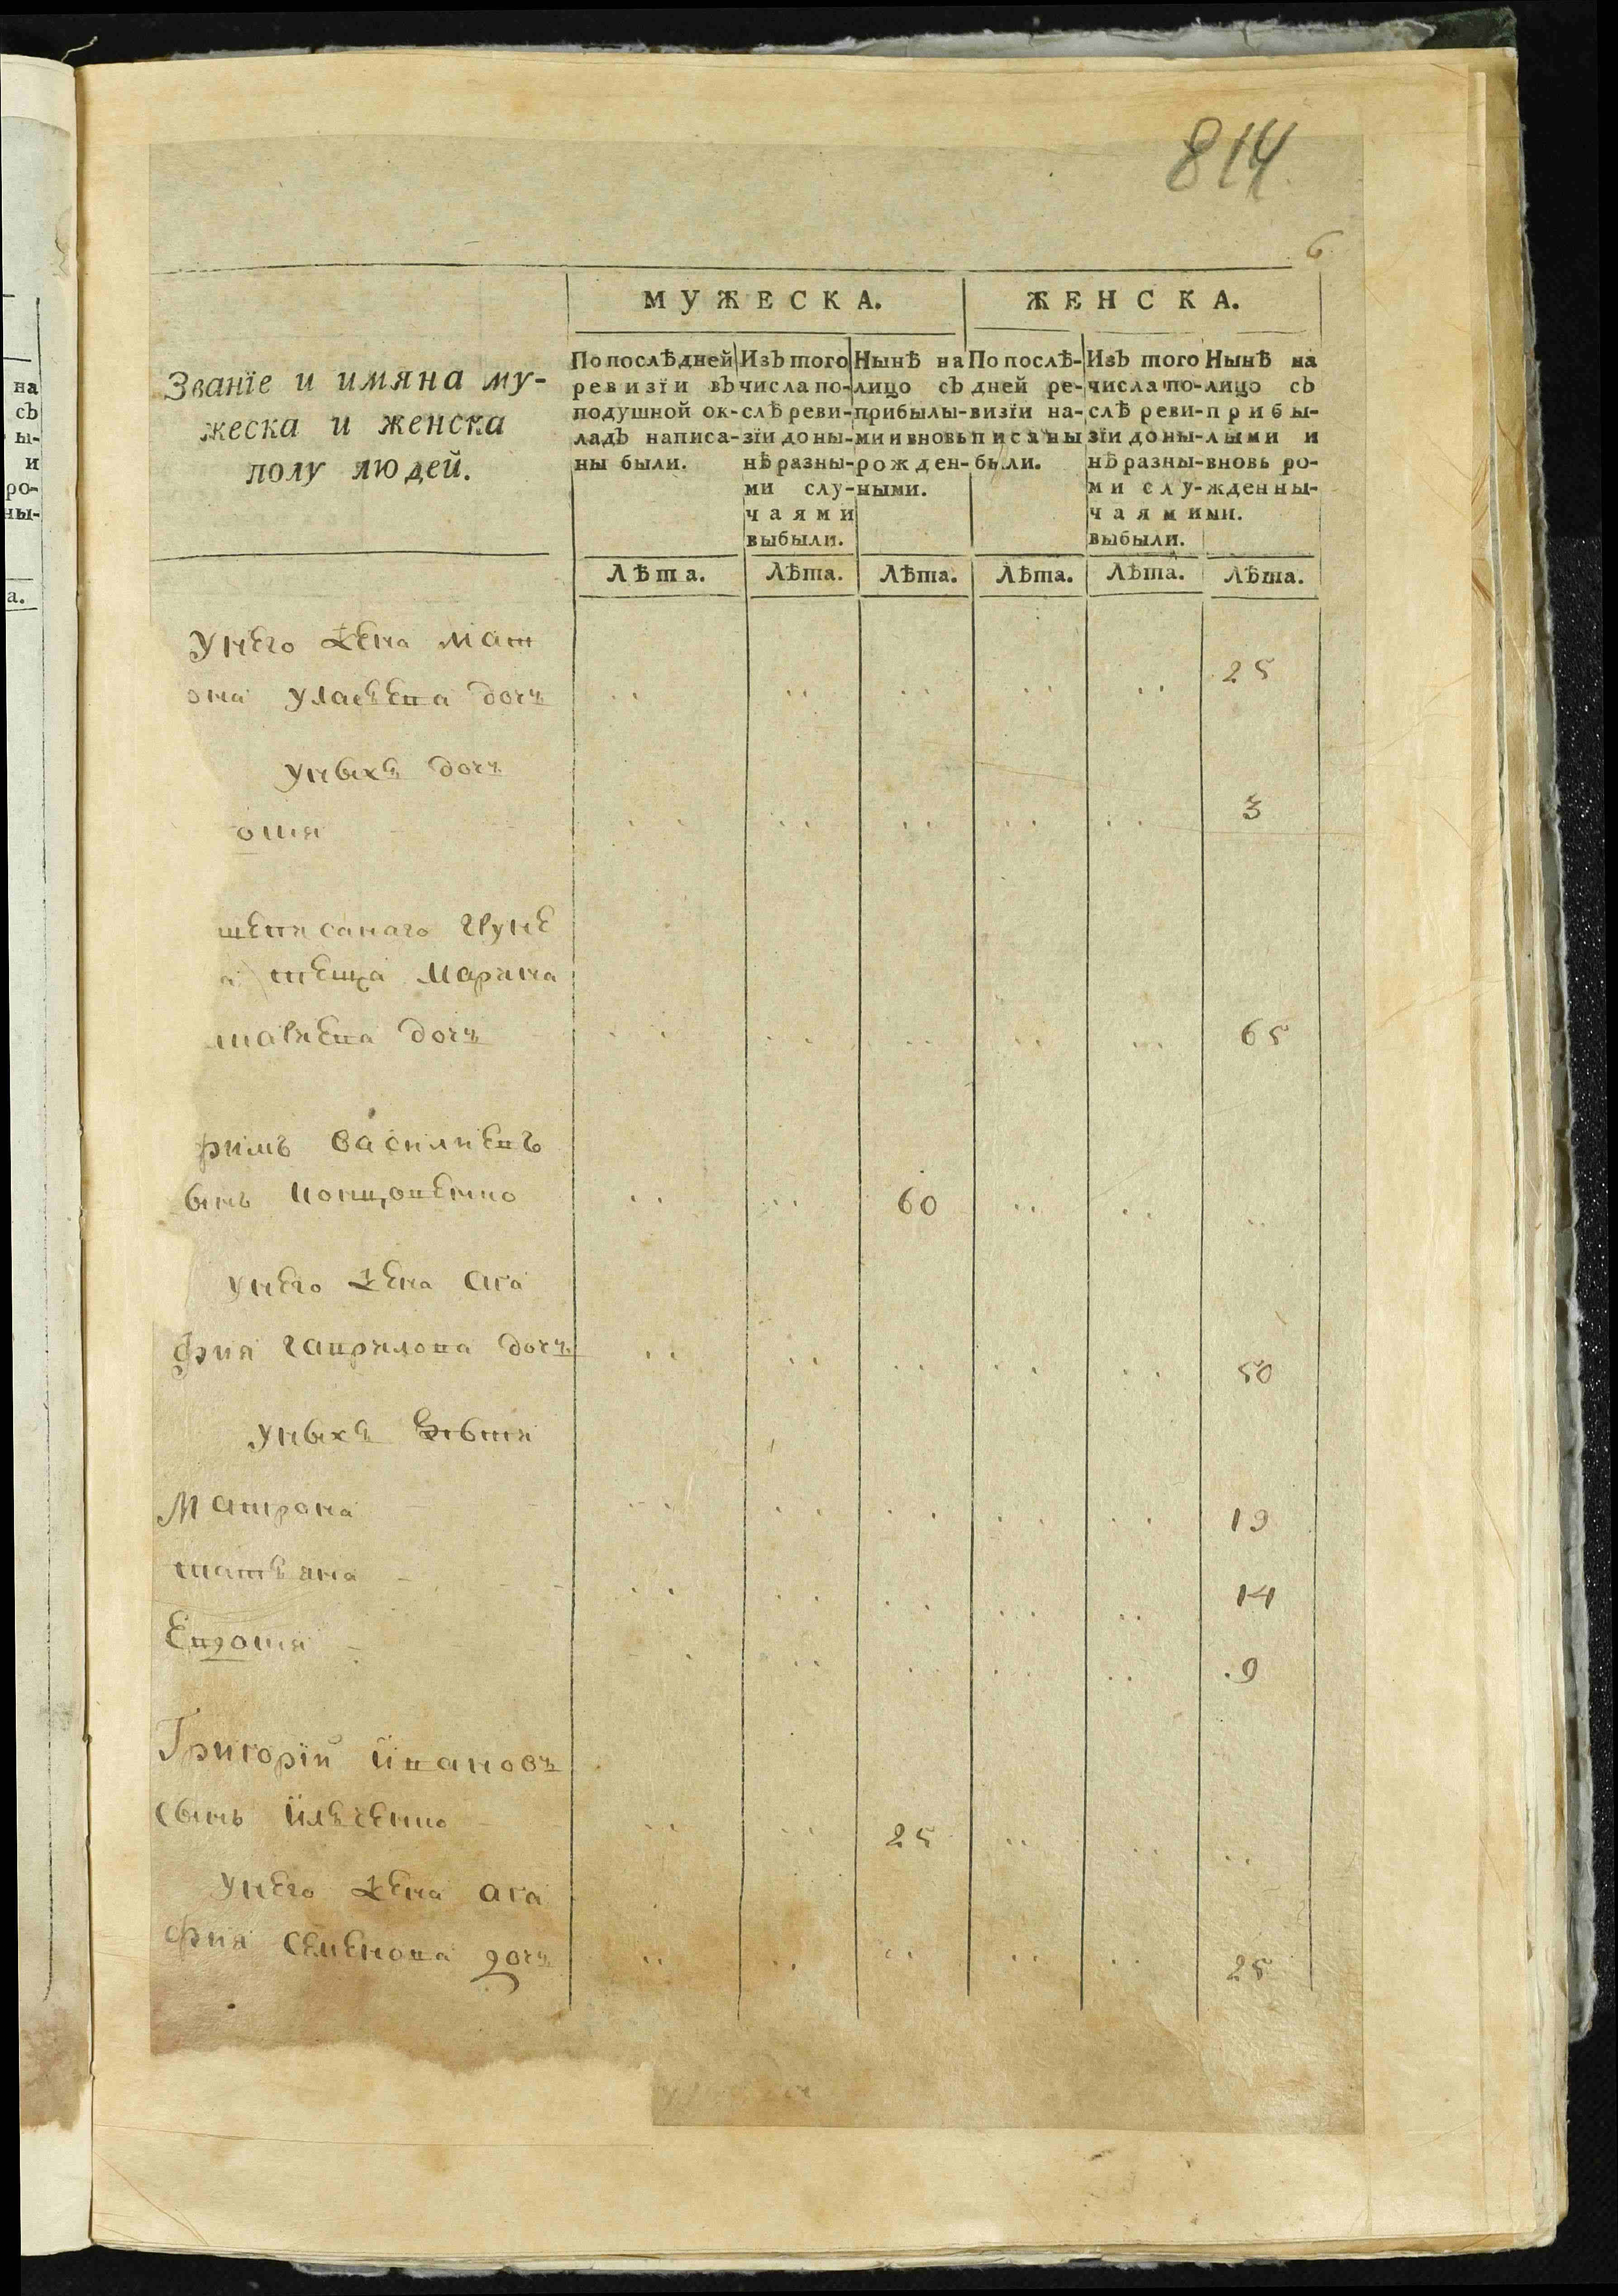 814
6
МУЖЕСКА.
ЖЕНСКА.
Званїе и имяна му-
жеска и женска
полу людей.
По послѣдней
ревизїи въ
подушной ок-
ладъ написа-
ны были.
Изъ того
числа по-
слѣ реви-
зїи до ны-
нѣ разны-
ми слу-
чаями
выбыли.
Нынѣ на
лицо съ
прибылы-
ми и вновь
рожден-
ными.
По послѣ-
дней ре-
визїи на-
писаны
были.
Изъ того
числа по-
слѣ реви-
зїи до ны-
нѣ разны-
ми слу-
чаями
выбыли.
Нынѣ на
лицо съ
прибы-
лыми и
вновь ро-
жденны-
ми.
Лѣта. Лѣта. Лѣта. Лѣта. Лѣта. Лѣта.
унего жена мат
она уласѣева дочъ .. .. .. .. .. 25
уныхъ дочъ
отя .. .. .. .. .. 3
шеписанаго груне
а теща марина
дочъ .. .. .. .. .. 65
фимъ василиевъ
ынъ .. .. 60 .. .. ..
унего жена ага
фия гаврилова дочъ .. .. .. .. .. 50
уныхъ
Матрона .. .. .. .. .. 19
татьяна .. .. .. .. .. 14
Евдотя .. .. .. .. .. 9
Григорїй їйвановъ
сынъ їлѣченко .. .. 25 .. .. ..
унего жена ага
фия семенова дочъ .. .. .. .. .. 25
на
съ
ы-
и
ро-
ны-
а.